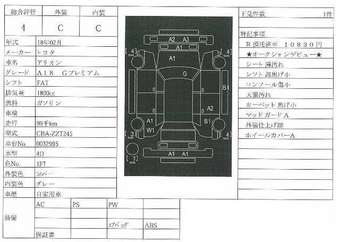 総合評価 外装 内装
4 C C
年式 18年02月
メーカー トヨタ
車名 アリオン
グレード A18 Gプレミアム
排気量 1800cc
シフト FAT
燃料 ガソリン
車検
走行
型式 CBA-ZZT245
車台No 0032005
水型 4D
色No 1F7
外装色 シルバー
内装色 グレー
車歴 自家用車
AC PS PW
エアバッグ ABS
装備
保証書
A3 A2
C A1
A1
C
W1
B1
A1
A1
下見件数 1件
特記事項
R預託済※ 10930円
★オークションデビュー★
シート薄汚れ
シフト部焦げ小
コンソール傷小
天張汚れ
カーペット焦げ小
マッドガードA
外装仕上げ跡
ホイールカバーA